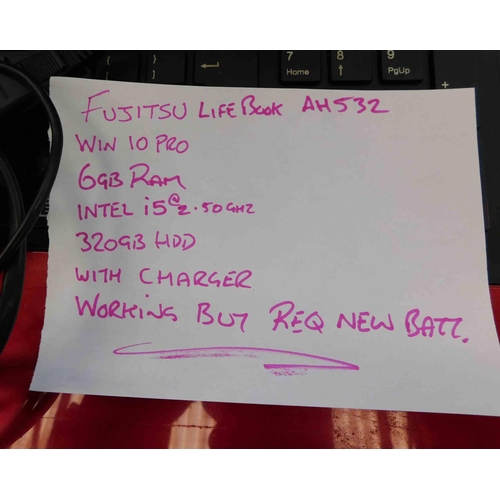 7 8 9
Home PgUp
FUJITSU LIFEBOOK AH532
WIN 10 PRO
6GB RAM
INTEL i5 @ 2.50GHZ
320GB HDD
WITH CHARGER
WORKING BUT REQ NEW BATT.